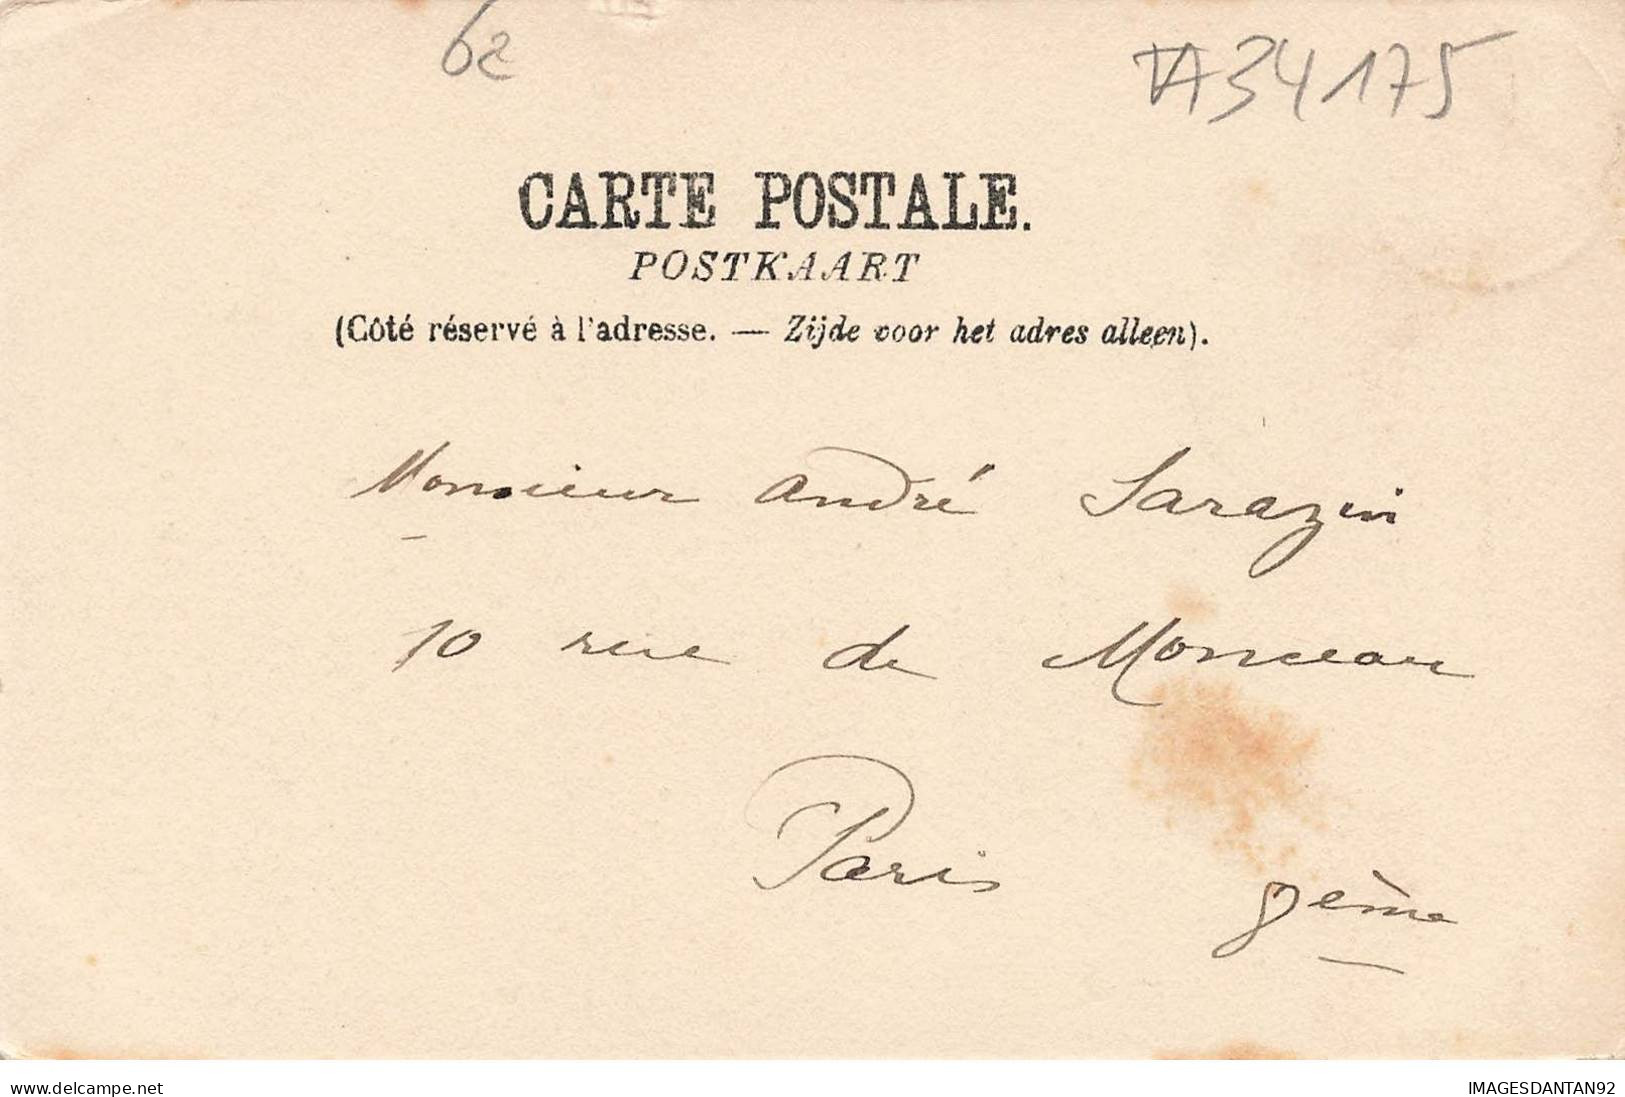 62
TA34175
CARTE POSTALE.
POSTKAART
(Côté réservé à l'adresse. — Zijde voor het adres alleen).
Monsieur André Sarazin
10 rue de Monceau
Paris 8ème
www.delcampe.net IMAGESDANTAN92